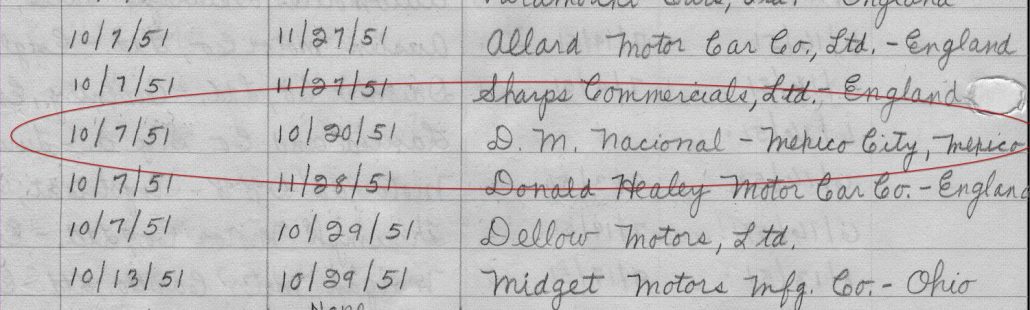 Paramount Cars, Ltd. England
10/7/51 11/27/51 Allard Motor Car Co., Ltd. - England
10/7/51 11/27/51 Sharps Commercials, Ltd. - England
10/7/51 10/20/51 D. M. Nacional - Mexico City, Mexico
10/7/51 11/28/51 Donald Healey Motor Car Co. - England
10/7/51 10/29/51 Dellow Motors, Ltd.
10/13/51 10/29/51 Midget Motors Mfg. Co. - Ohio
None